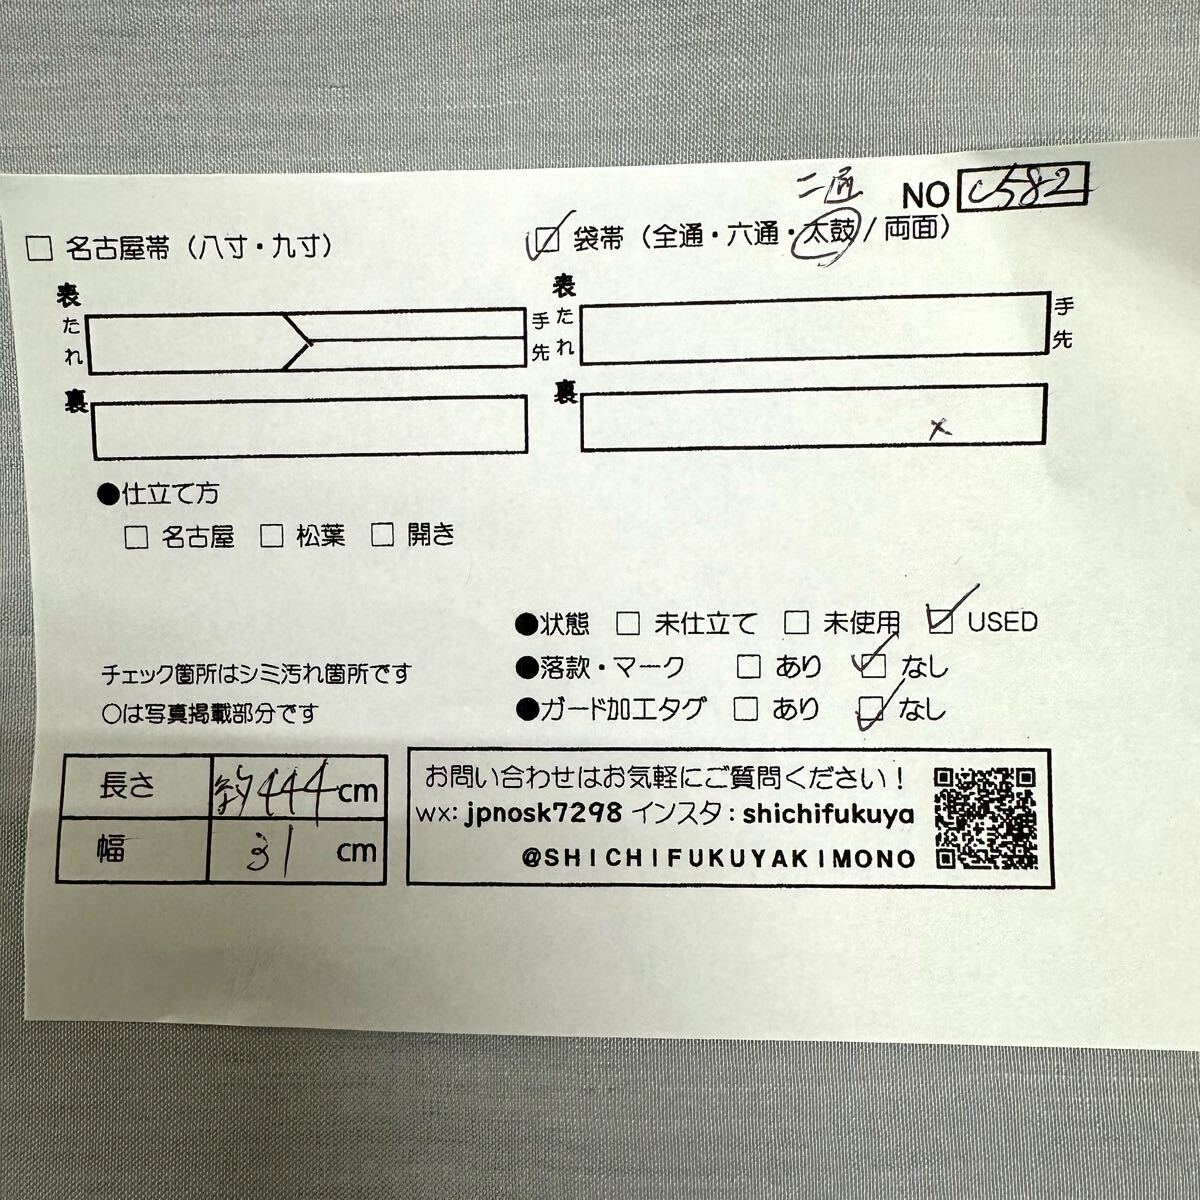 二通 NO C582
□ 名古屋帯（八寸・九寸）
☑ 袋帯（全通・六通・太鼓/両面）
表
たれ
手先
裏
表
たれ
手先
裏
×
●仕立て方
□ 名古屋 □ 松葉 □ 開き
●状態 □ 未仕立て □ 未使用 ☑ USED
●落款・マーク □ あり ☑ なし
●ガード加工タグ □ あり ☑ なし
チェック箇所はシミ汚れ箇所です
○は写真掲載部分です
長さ 約444cm
幅 31 cm
お問い合わせはお気軽にご質問ください！
wx: jpnosk7298 インスタ：shichifukuya
@SHICHIFUKUYAKIMONO